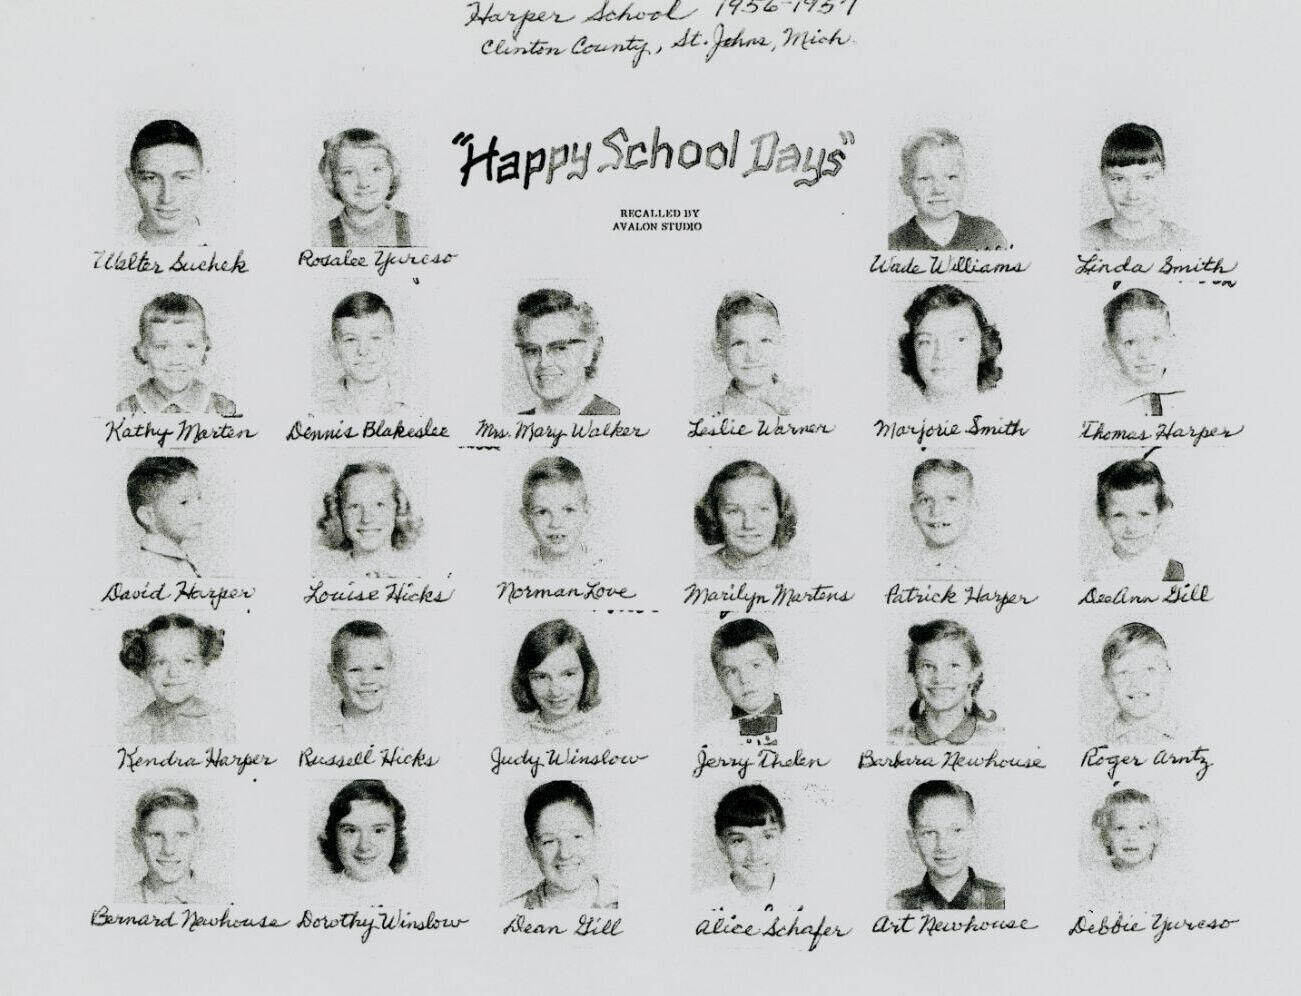 Harper School 1956-1957
Clinton County, St. Johns, Mich.
"Happy School Days"
RECALLED BY
AVALON STUDIO
Walter Suchek Rosalee Yurcso Wade Williams Linda Smith
Kathy Marten Dennis Blakeslee Mrs. Mary Walker Leslie Warner Marjorie Smith Thomas Harper
David Harper Louise Hicks Norman Love Marilyn Martens Patrick Harper DeeAnn Gill
Kendra Harper Russell Hicks Judy Winslow Jerry Thelen Barbara Newhouse Roger Arntz
Bernard Newhouse Dorothy Winslow Dean Gill Alice Schafer Art Newhouse Debbie Yurcso